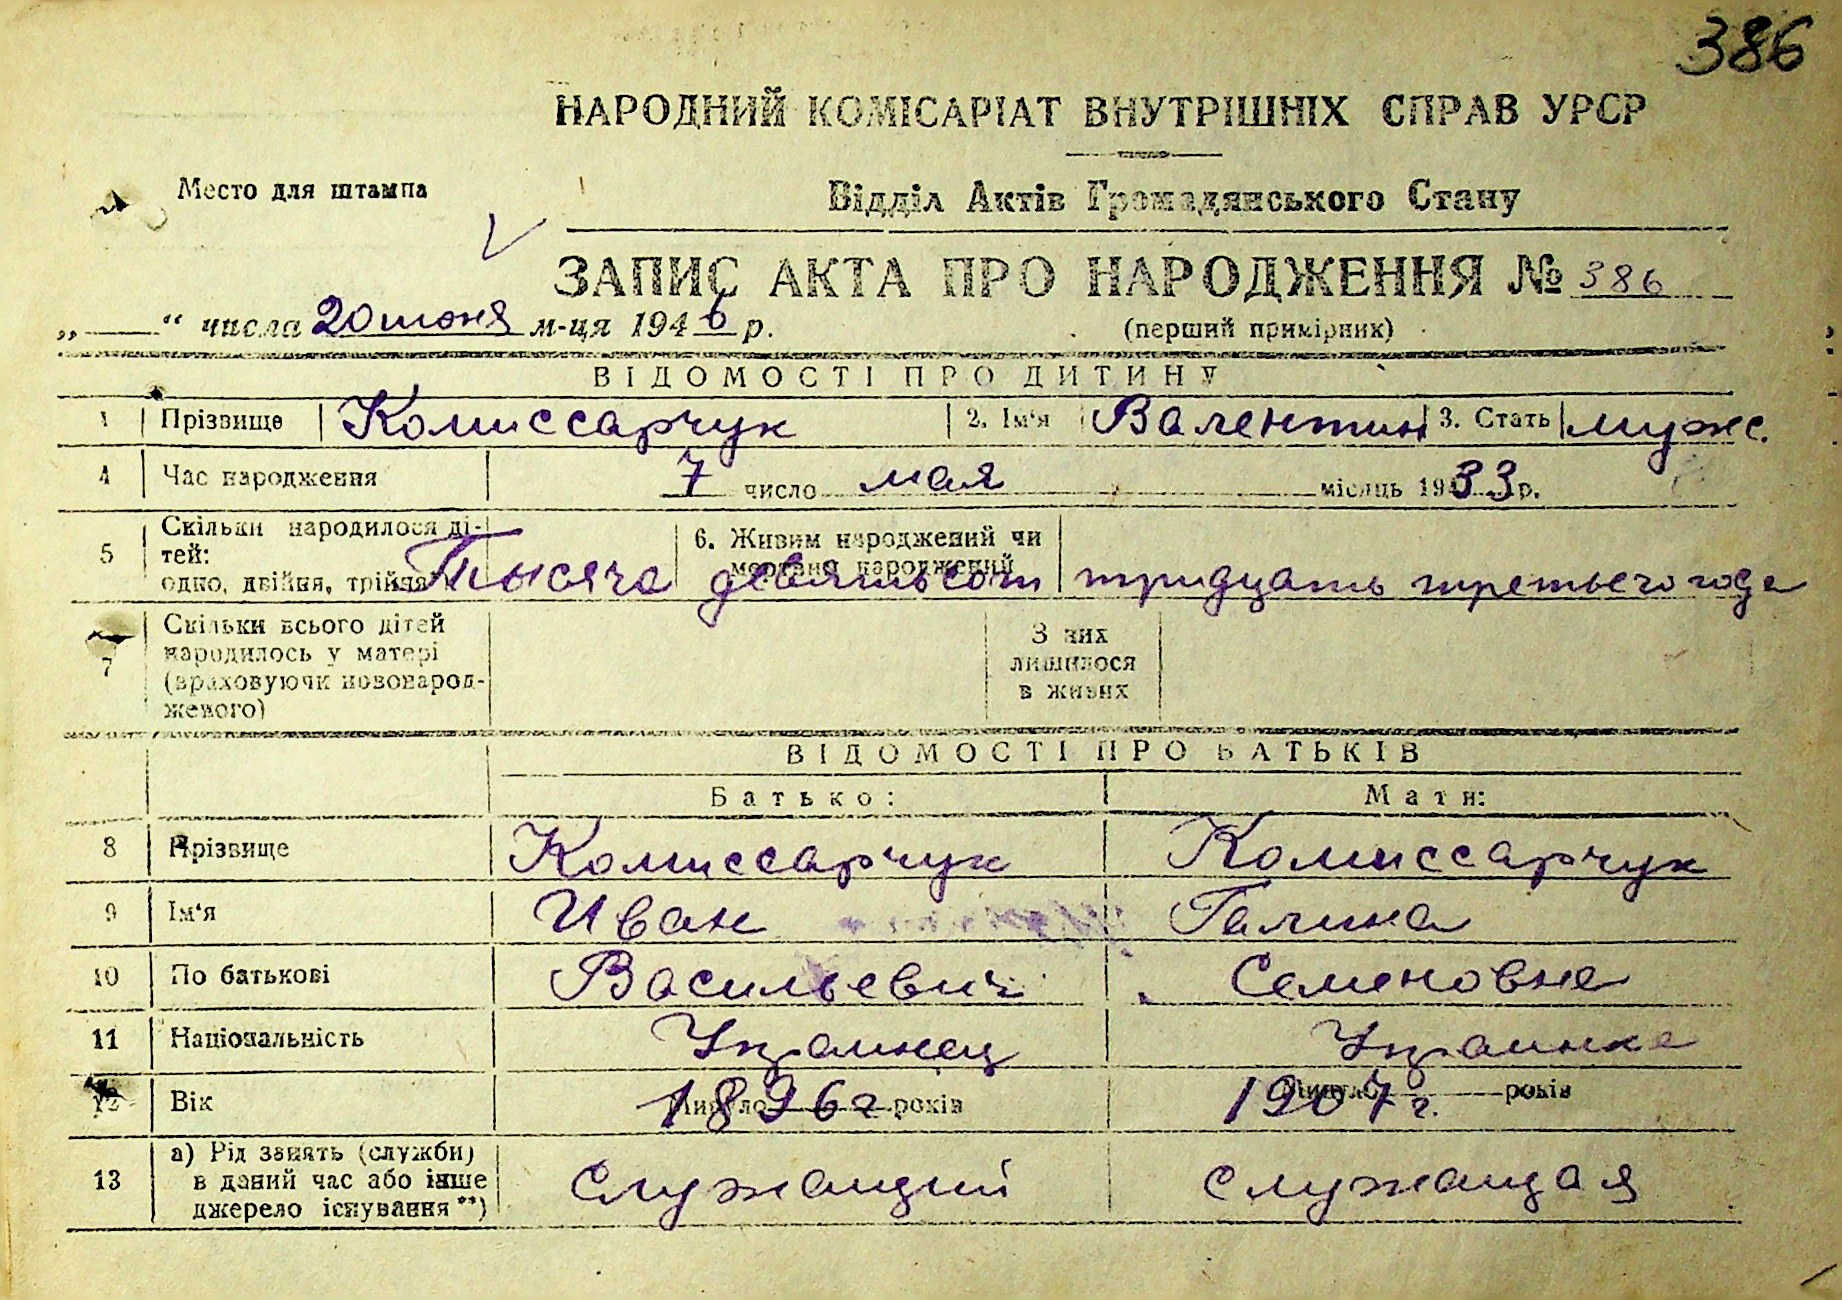 386
НАРОДНИЙ КОМІСАРІАТ ВНУТРІШНІХ СПРАВ УРСР
Место для штампа
Відділ Актів Громадянського Стану
ЗАПИС АКТА ПРО НАРОДЖЕННЯ № 386
„——“ числа 20 июня м-ця 1946 р.
(перший примірник)
ВІДОМОСТІ ПРО ДИТИНУ
1 Прізвище Комиссарчук 2. Ім'я Валентин 3. Стать мужс.
4 Час народження 7 число мая місяць 1933 р.
5 Скільки народилося ді-
тей:
одно, двійня, трійня
6. Живим народжений чи
мертвим народжений
Тысяча девятьсот тридцать третьего года
7 Скільки всього дітей
народилось у матері
(враховуючи новонарод-
женого)
З них
лишилося
в живих
ВІДОМОСТІ ПРО БАТЬКІВ
Батько: Мати:
8 Прізвище Комиссарчук Комиссарчук
9 Ім'я Иван Галина
10 По батькові Васильевич Семеновна
11 Національність Украинец Украинка
12 Вік Минуло 1896 г. років Минуло 1907 г. років
13 а) Рід занять (служби)
в даний час або інше
джерело існування **)
Служащий Служащая